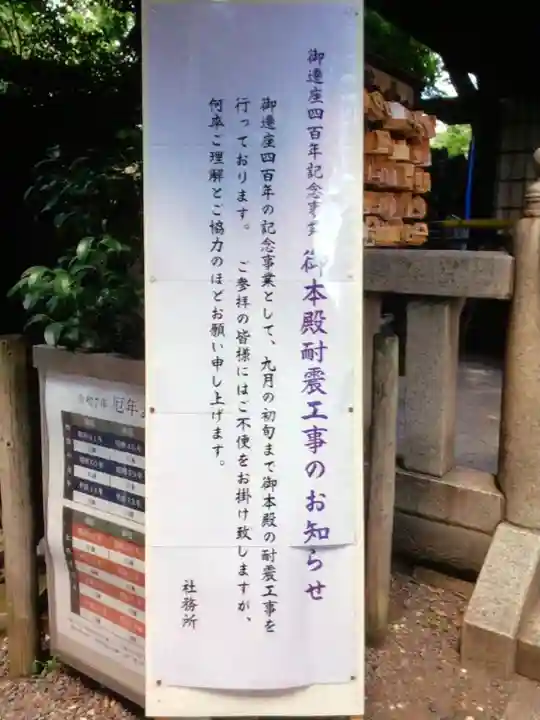 御遷座四百年記念事業 御本殿耐震工事のお知らせ
御遷座四百年の記念事業として、九月の初旬まで御本殿の耐震工事を
行っております。 ご参拝の皆様にはご不便をお掛け致しますが、
何卒ご理解とご協力のほどお願い申し上げます。
社務所
令和7年 厄年